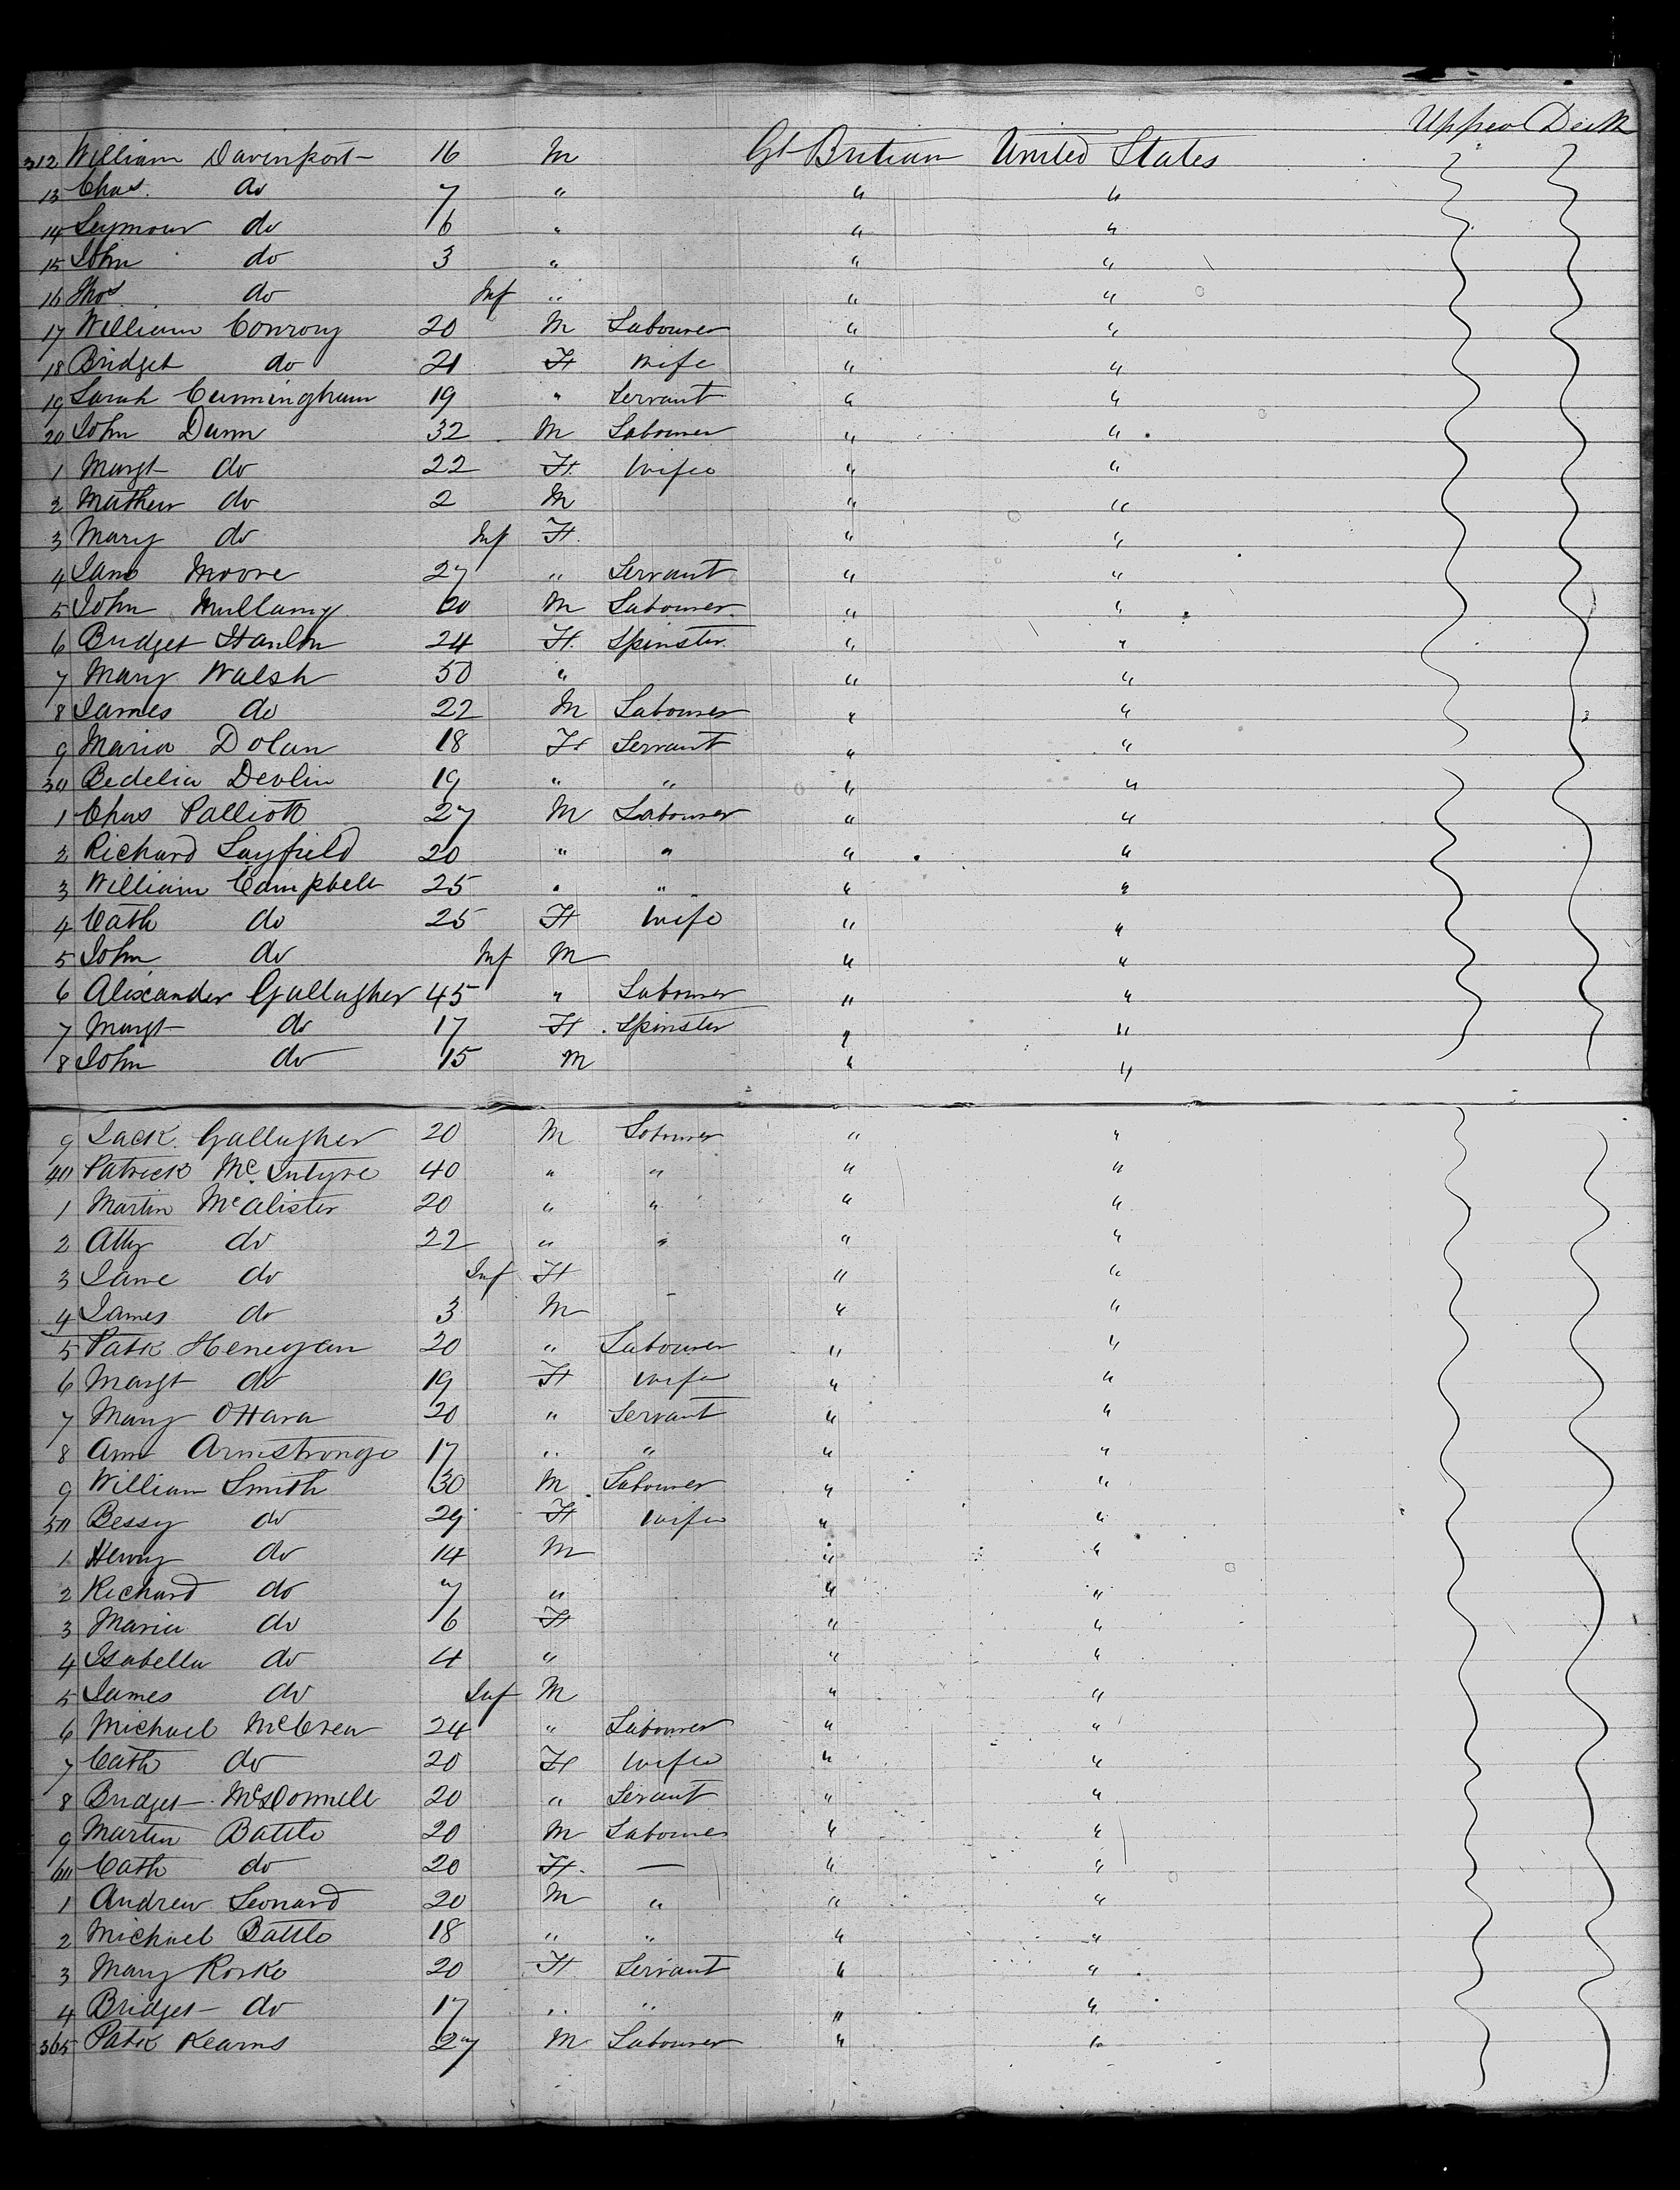 Upper Deck
312 William Davenport 16 M Gt Britian United States
13 Chas. do 7 " " "
14 Seymour do 6 " " "
15 John do 3 " " "
16 Thos do Inf " " "
17 William Conroy 20 M Labourer " "
18 Bridget do 21 F wife " "
19 Sarah Cunningham 19 " Servant " "
20 John Dunn 32 M Labourer " "
1 Margt do 22 F. Wife " "
2 Mathew do 2 M " "
3 Mary do Inf F. " "
4 Jane Moore 27 " Servant " "
5 John Mullamy 20 M Labourer " "
6 Bridget Hanlon 24 F. Spinster. " "
7 Mary Walsh 50 " " "
8 James do 22 M Labourer " "
9 Maria Dolan 18 F Servant " "
30 Bedelia Devlin 19 " " " "
1 Chas Palliott 27 M Labourer " "
2 Richard Layfield 20 " " " "
3 William Campbell 25 " " " "
4 Cath do 25 F Wife " "
5 John do Inf M " "
6 Alixander Gallagher 45 " Labourer " "
7 Margt do 17 F. Spinster " "
8 John do 15 M " "
9 Jack Gallagher 20 M Labourer " "
40 Patrick McIntyre 40 " " " "
1 Martin McAlister 20 " " " "
2 Atty do 22 " " " "
3 Jane do Inf F " "
4 James do 3 M " "
5 Patk Henegan 20 " Labourer " "
6 Margt do 19 F wife " "
7 Mary OHara 20 " Servant " "
8 Ann Armstronge 17 " " " "
9 William Smith 30 M Labourer " "
50 Bessy do 29 F Wife " "
1 Henry do 14 M " "
2 Richard do 7 " " "
3 Maria do 6 F " "
4 Isabella do 4 " " "
5 James do Inf M " "
6 Michael McCrea 24 " Labourer " "
7 Cath do 20 F Wife " "
8 Bridget McDonnell 20 " Servant " "
9 Martin Battle 20 M Labourer " "
60 Cath do 20 F. — " "
1 Andrew Leonard 20 M " " "
2 Michael Battle 18 " " " "
3 Mary Rorke 20 F Servant " "
4 Bridget do 17 " " " "
365 Patk Kearns 27 M Labourer " "